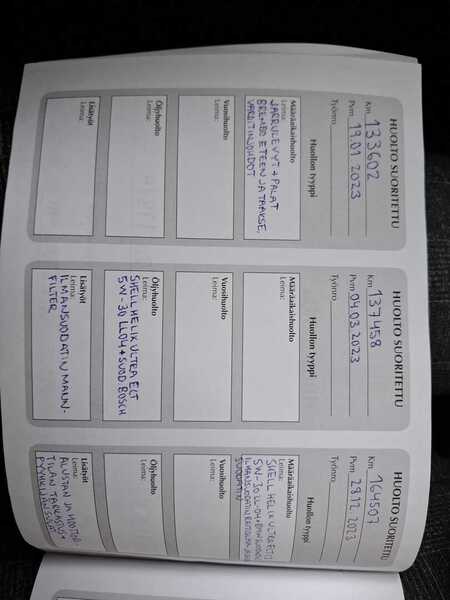 HUOLTO SUORITETTU
Km 133602
Pvm 19.01 2023
Työnro
Huollon tyyppi
Määräaikaishuolto
Leima:
JARRULEVYT + PALAT
BREMBO ETEEN JA TAAKSE,
VAROITINJOHDOT
Vuosihuolto
Leima:
Öljyhuolto
Leima:
Lisätyöt
Leima:
HUOLTO SUORITETTU
Km 137458
Pvm 04.03 2023
Työnro
Huollon tyyppi
Määräaikaishuolto
Leima:
Vuosihuolto
Leima:
Öljyhuolto
Leima:
SHELL HELIX ULTRA ECT
5W-30 LL04 + SUOD. BOSCH
Lisätyöt
Leima:
ILMANSUODATIN MANN-
FILTER
HUOLTO SUORITETTU
Km 164507
Pvm 28.12. 2023
Työnro
Huollon tyyppi
Määräaikaishuolto
Leima:
SHELL HELIX ULTRA
5W-30 LL-04 +
ILMANSUODATIN
SUODATIN
Vuosihuolto
Leima:
Öljyhuolto
Leima:
Lisätyöt
Leima:
ALUSTAN JA MOOTTORI-
TILAN TARKASTUS +